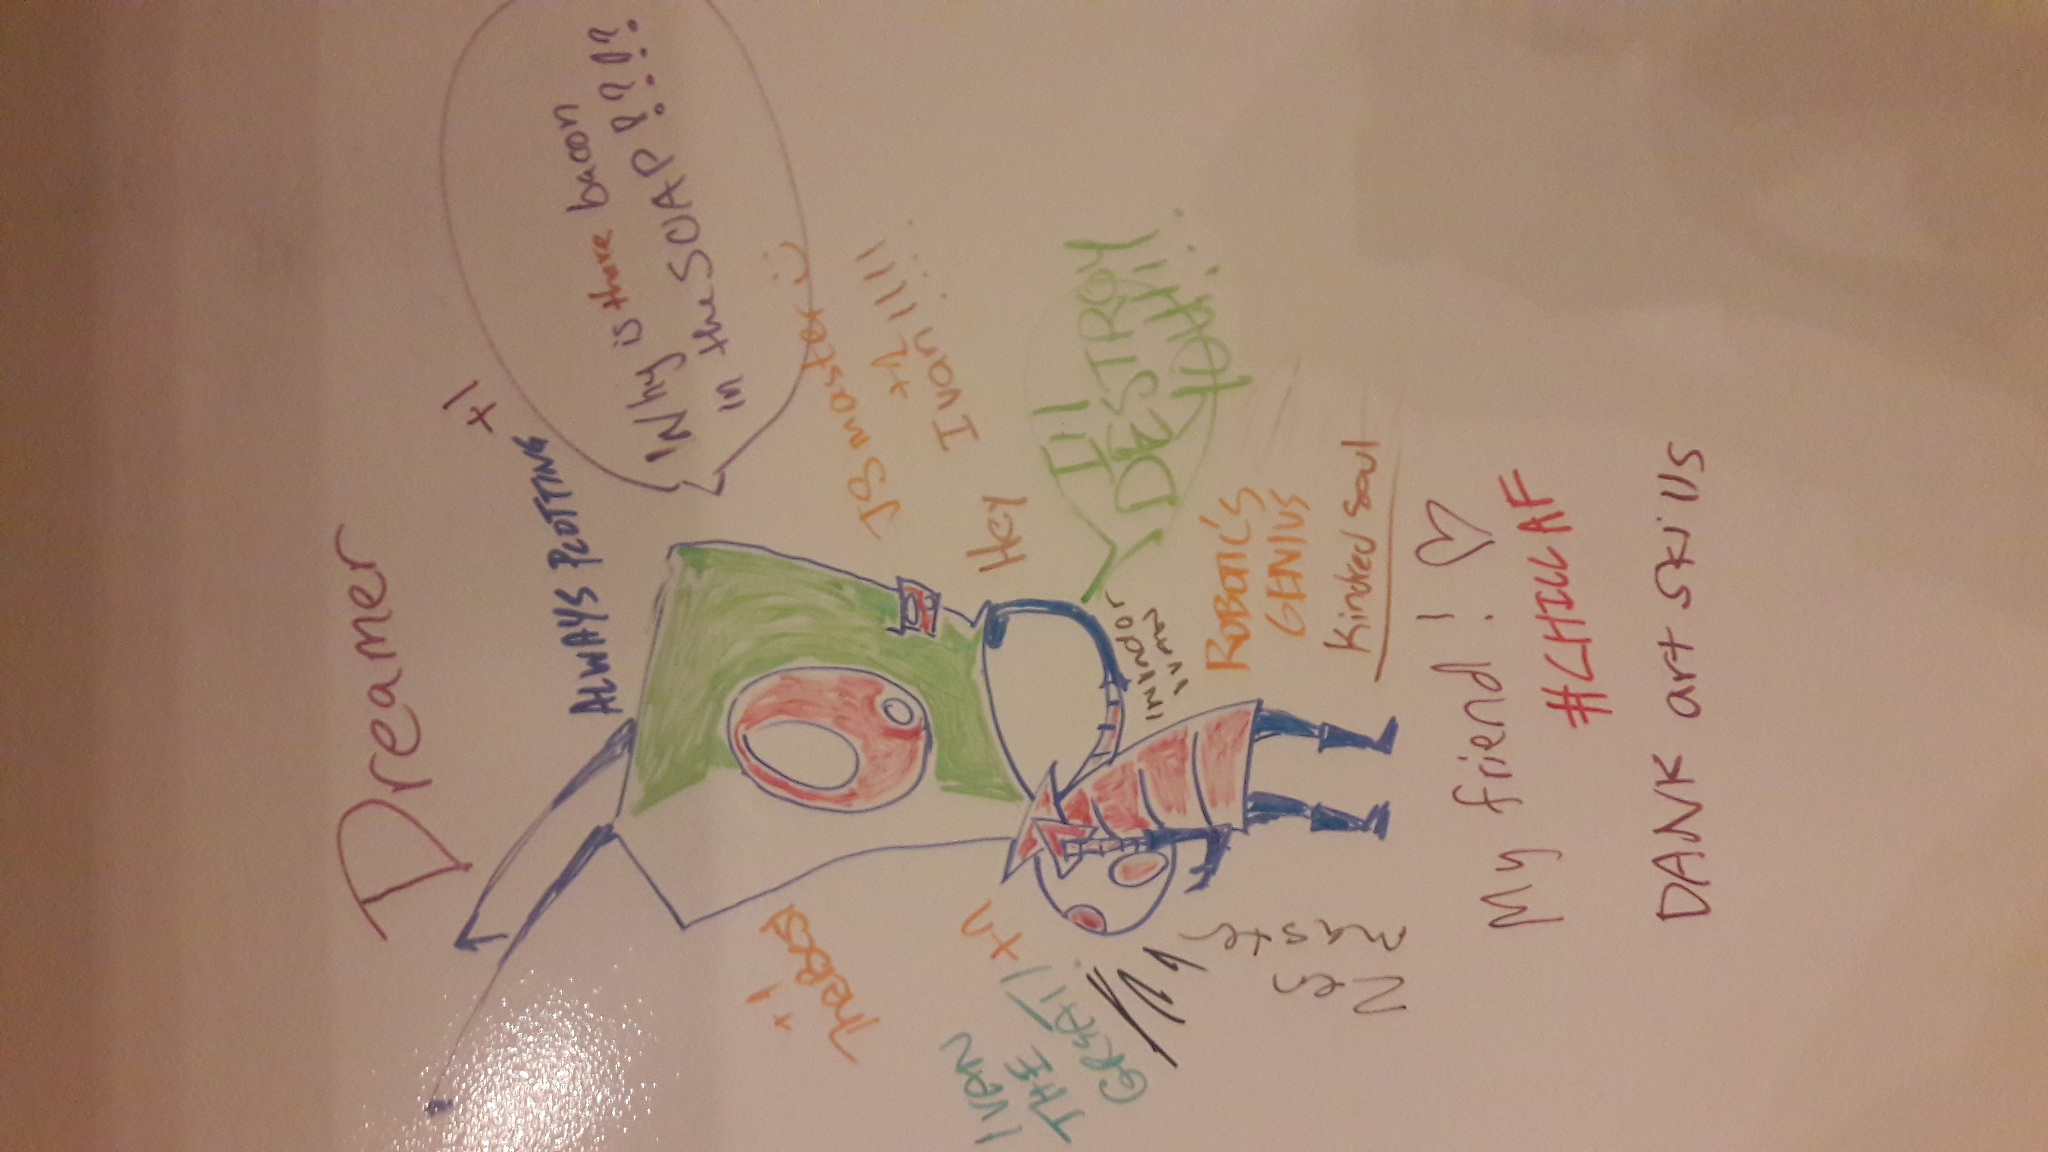 Dreamer
ALWAYS PLOTTING +1
Why is there bacon
in the SOAP!??!?
+1
The Best
JS master
+1
Hey Ivan!!!!
IVAN
THE
GREAT! +n
I'll
DESTROY
YOU!!!
INVADOR
IVAN
Zen
master
ROBOTIC'S
GENIUS
Kindred soul
My friend! ♡
#CHILLAF
DANK art skills